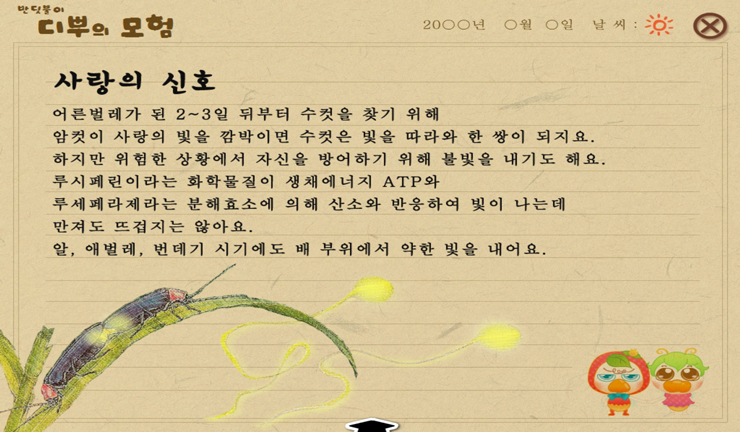 반딧불이
디뿌의 모험
20○○년 ○월 ○일 날 씨 :
사랑의 신호
어른벌레가 된 2~3일 뒤부터 수컷을 찾기 위해
암컷이 사랑의 빛을 깜박이면 수컷은 빛을 따라와 한 쌍이 되지요.
하지만 위험한 상황에서 자신을 방어하기 위해 불빛을 내기도 해요.
루시페린이라는 화학물질이 생채에너지 ATP와
루세페라제라는 분해효소에 의해 산소와 반응하여 빛이 나는데
만져도 뜨겁지는 않아요.
알, 애벌레, 번데기 시기에도 배 부위에서 약한 빛을 내어요.